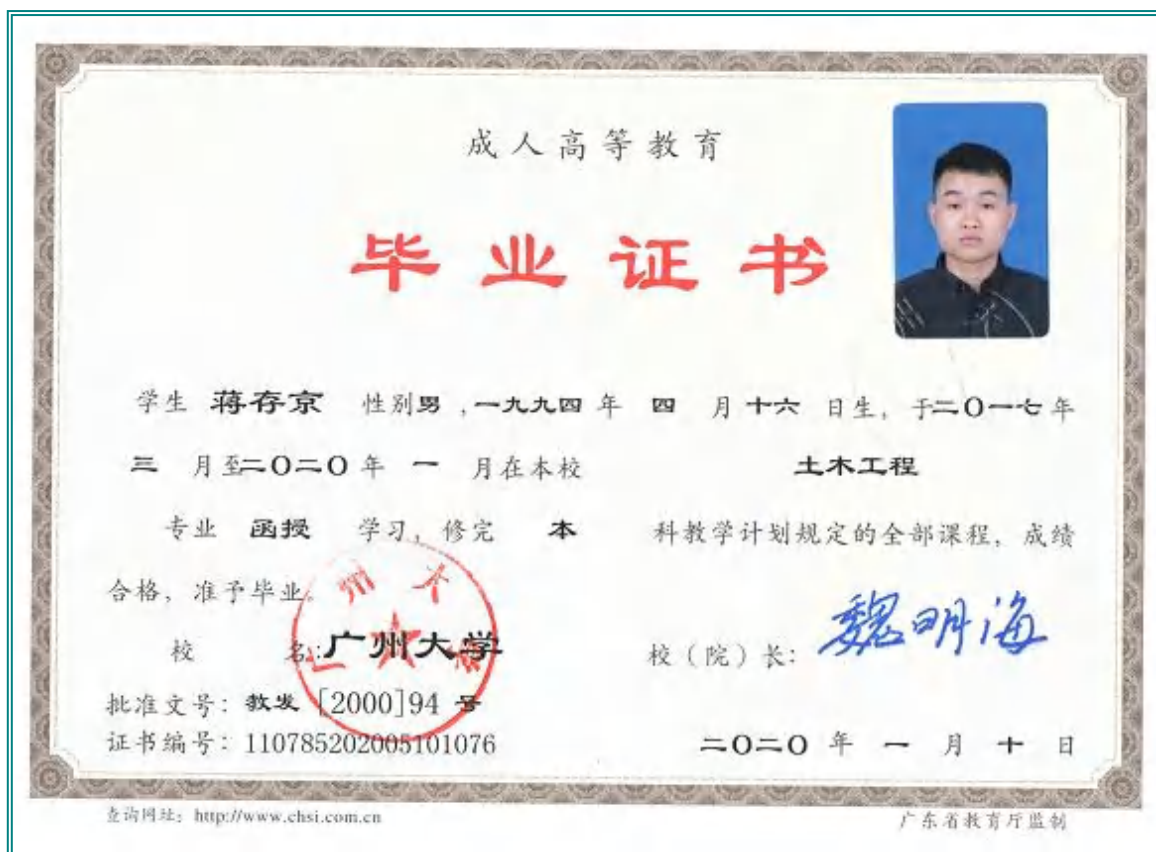 成人高等教育
毕业证书
学生 蒋存京 性别男，一九九四年 四 月十六 日生，于二〇一七年
三 月至二〇二〇年 一 月在本校 土木工程
专业 函授 学习，修完 本 科教学计划规定的全部课程，成绩
合格，准予毕业。
广州大学
校 名：广州大学 校（院）长：魏明海
批准文号：教发［2000］94 号
证书编号：110785202005101076 二〇二〇 年 一 月 十 日
查询网址：http://www.chsi.com.cn 广东省教育厅监制